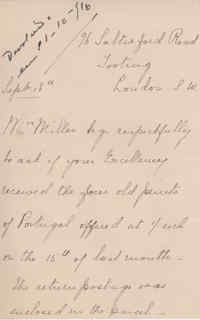 em 21-10-1910
96 Salterford Road
Tooting
London. S.W.
Sept. 18th
Mrs Miller begs respectfully
to ask if your Excellency
received the four old prints
of Portugal offered at 1/ each
on the 15th of last month –
The return postage was
enclosed in the parcel –